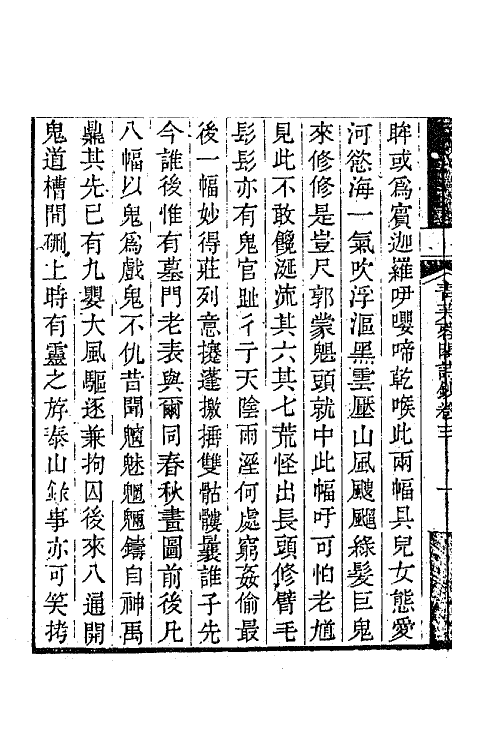 眸或爲賓迦羅吚嚶啼乾喉此兩幅具兒女態愛
河慾海一氣吹浮漚黑雲壓山風颼飀綠髮巨鬼
來修修是豈尺郭蒙魌頭就中此幅吁可怕老馗
見此不敢饞涎流其六其七荒怪出長頭修臂毛
髟髟亦有鬼官趾彳亍天陰雨溼何處窮姦偷最
後一幅妙得莊列意攓蓬撽捶雙骷髏曩誰子先
今誰後惟有墓門老表與爾同春秋畫圖前後凡
八幅以鬼爲戲鬼不仇昔聞魑魅魍魎鑄自神禹
鼎其先已有九嬰大風驅逐兼拘囚後來八通開
鬼道槽間硎上時有靈之斿泰山錄事亦可笑拷
閣詩鈔卷三